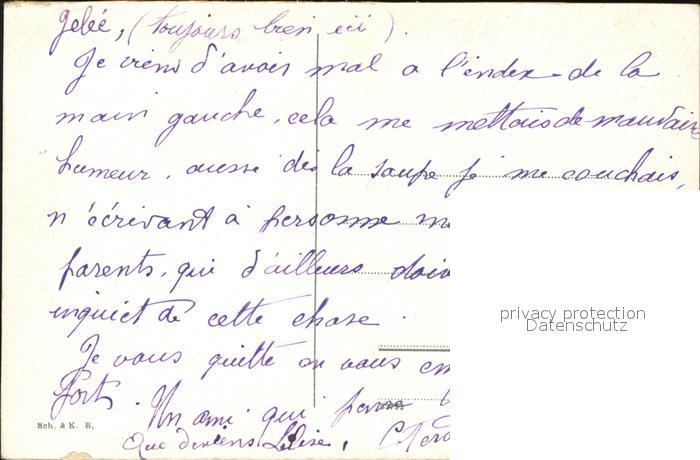 Gelée, (toujours bien ici).
Je viens d'avoir mal a l'index de la
main gauche, cela me mettais de mauvaise
humeur, aussi dès la soupe je me couchais,
n'écrivant à personne
parents, qui d'ailleurs
inquiet de cette chose.
privacy protection
Datenschutz
Je vous quitte en vous
fort. Un ami qui pense
Sch. & K. B.
Que deviens